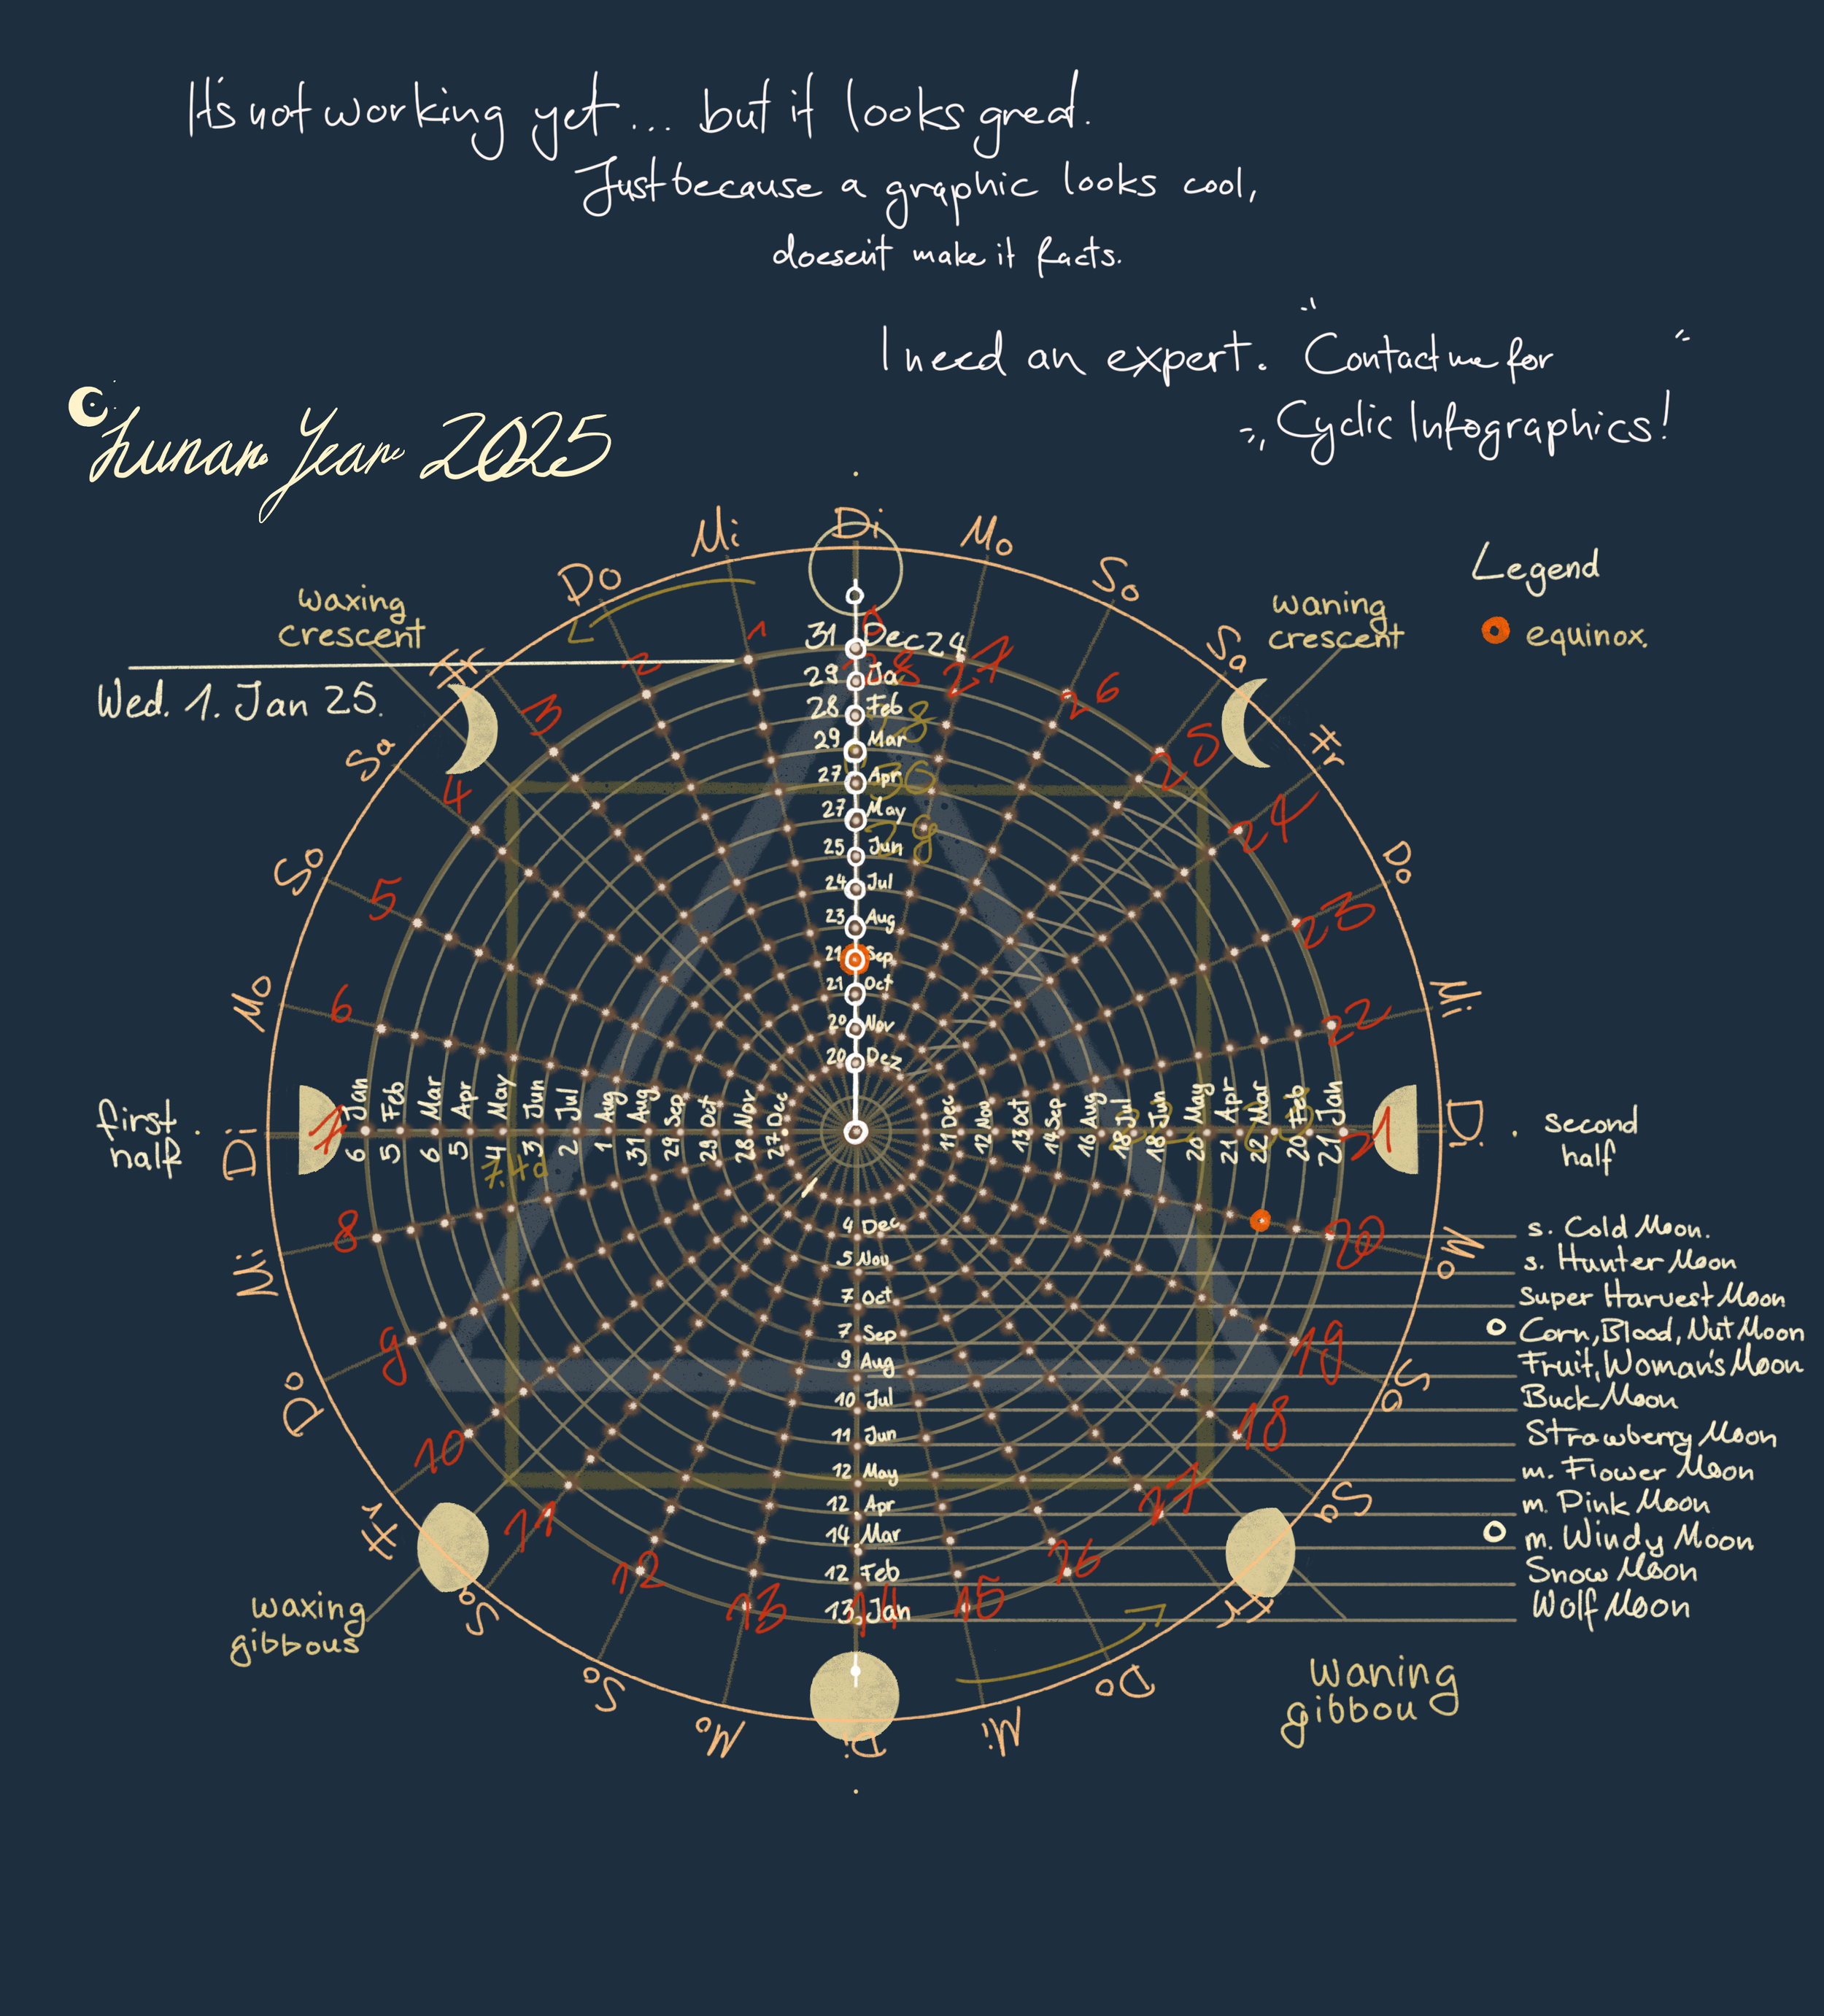 It's not working yet... but it looks great.
Just because a graphic looks cool,
doesen't make it facts.
I need an expert. "Contact me for
Cyclic Infographics!"
Lunar Year 2025
Legend
equinox.
waxing
crescent
waning
crescent
Wed. 1. Jan 25.
Di
Mi
Do
Fr
Sa
So
Mo
Di
Mi
Do
Fr
Sa
So
Mo
Di
Mi
Do
Fr
Sa
So
Mo
Di
Mi
Do
Fr
Sa
So
Mo
1
2
3
4
5
6
7
8
9
10
11
12
13
14
15
16
17
18
19
20
21
22
23
24
25
26
27
28
31 Dec 24
29 Ja
28 Feb
29 Mar
27 Apr
27 May
25 Jun
24 Jul
23 Aug
21 Sep
21 Oct
20 Nov
20 Dez
30
28
first
half
6 Jan
5 Feb
6 Mar
5 Apr
4 May
3 Jun
2 Jul
1 Aug
31 Aug
29 Sep
29 Oct
28 Nov
27 Dec
7.4d
11 Dec
12 Nov
13 Oct
14 Sep
16 Aug
18 Jul
18 Jun
20 May
21 Apr
22 Mar
20 Feb
21 Jan
second
half
4 Dec
5 Nov
7 Oct
7 Sep
9 Aug
10 Jul
11 Jun
12 May
12 Apr
14 Mar
12 Feb
13 Jan
s. Cold Moon.
s. Hunter Moon
Super Harvest Moon
Corn, Blood, Nut Moon
Fruit, Woman's Moon
Buck Moon
Strawberry Moon
m. Flower Moon
m. Pink Moon
m. Windy Moon
Snow Moon
Wolf Moon
waxing
gibbous
Waning
gibbou